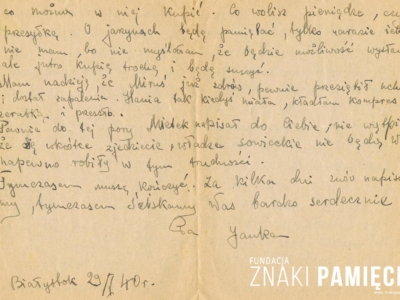 co można w niej kupić. Co wolisz pieniądze, czy
przesyłkę. O jarzynach będę pamiętać, tylko narazie ich
nie mam, bo nie myślałam, że będzie możliwość wysłan
ale jutro kupię trochę i będę suszyć.
Mam nadzieję, że Miruś już zdrów, pewnie przeziębił uch
i dostał zapalenia. Hania tak kiedyś miała, kładłam kompres
ceratką, i przeszło.
Pewnie do tej pory Mietek napisał do Ciebie, nie wątpi
że wkrótce zjedziecie, władze sowieckie nie będą W
napewno robiły w tym trudności.
Tymczasem muszę kończyć. Za kilka dni znów napis
my, tymczasem ściskamy Was bardzo serdecznie
Janka
Białystok 29/I 40r.
FUNDACJA
ZNAKI PAMIĘCI